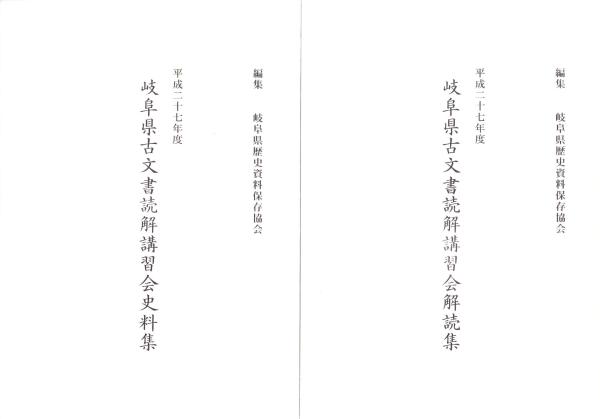 編集　岐阜県歴史資料保存協会
平成二十七年度
岐阜県古文書読解講習会解読集
編集　岐阜県歴史資料保存協会
平成二十七年度
岐阜県古文書読解講習会史料集